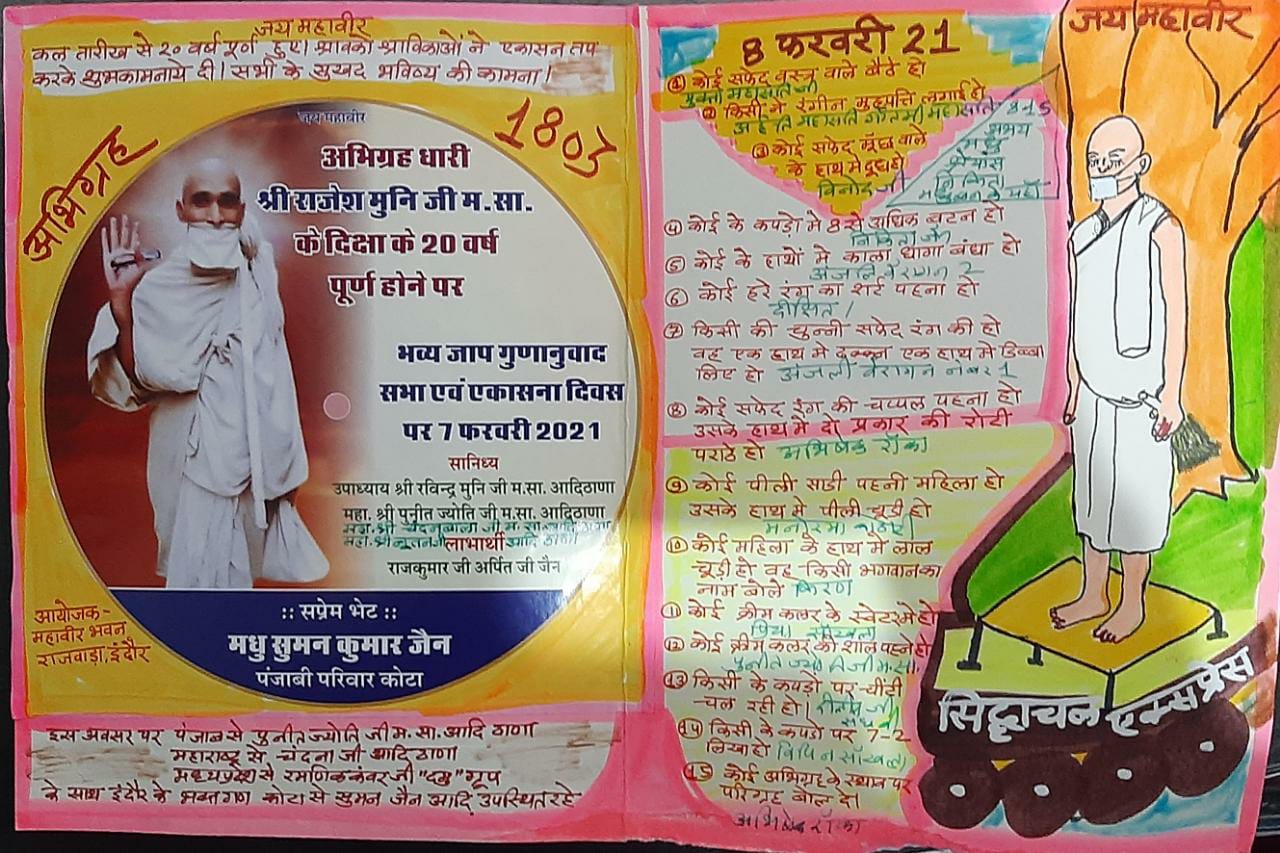 जय महावीर
कल तारीख से २० वर्ष पूर्ण हुए। श्रावको श्राविकाओं ने एकासन तप
करके शुभकामनाये दी। सभी के सुखद भविष्य की कामना।
अभिग्रह
1803
जय महावीर
अभिग्रह धारी
श्री राजेश मुनि जी म.सा.
के दिक्षा के 20 वर्ष
पूर्ण होने पर
भव्य जाप गुणानुवाद
सभा एवं एकासना दिवस
पर 7 फरवरी 2021
सानिध्य
उपाध्याय श्री रविन्द्र मुनि जी म.सा. आदिठाणा
महा. श्री पुनीत ज्योति जी म.सा. आदिठाणा
महा. श्री चंदनबाला जी म. सा. आदि ठाणा
लाभार्थी आदि ठाणा
राजकुमार जी अर्पित जी जैन
:: सप्रेम भेट ::
मधु सुमन कुमार जैन
पंजाबी परिवार कोटा
आयोजक-
महावीर भवन
राजवाड़ा, इंदौर
इस अवसर पर पंजाब से पुनीत ज्योति जी म. सा. आदि ठाणा
महाराष्ट्र से चंदना जी आदि ठाणा
मध्यप्रदेश से रमणिककंवर जी "दबु" ग्रूप
के साथ इंदौर के भक्त गण कोटा से सुमन जैन आदि उपस्थित रहे
8 फरवरी 21
① कोई सफेद वस्त्र वाले बैठे हो
② किसी ने रंगीन मुहपत्ति लगाई हो
8-15
③ कोई सफेद मूँछ वाले
के हाथ मे दूध हो
विनोद जी
④ कोई के कपड़ो मे 8 से अधिक बटन हो
⑤ कोई के हाथों मे काला धागा बंधा हो
अंजलि वैरागन 2
⑥ कोई हरे रंग का शर्ट पहना हो
दीक्षित।
⑦ किसी की चुन्नी सफेद रंग की हो
वह एक हाथ मे ढक्कन एक हाथ मे डिब्बा
लिए हो अंजली वैरागन नंबर 1
⑧ कोई सफेद रंग की चप्पल पहना हो
उसके हाथ मे दो प्रकार की रोटी
पराठे हो अभिषेक राँका
⑨ कोई पीली साडी पहनी महिला हो
उसके हाथ मे पीली चूड़ी हो
मनोरमा
⑩ कोई महिला के हाथ मे लाल
चूड़ी हो वह किसी भगवान का
नाम बोले किरण
⑪ कोई क्रीम कलर के स्वेटर मे हो
प्रिया
⑫ कोई क्रीम कलर की शाल पहने हो
पुनीत ज्योति जी म.सा.
⑬ किसी के कपड़ो पर चींटी
चल रही हो।
⑭ किसी के कपड़ो पर 7-2
लिखा हो विपिन
⑮ कोई अभिग्रह के स्थान पर
परिग्रह बोल दे।
अभिषेक राँका
जय महावीर
सिद्धाचल एक्सप्रेस